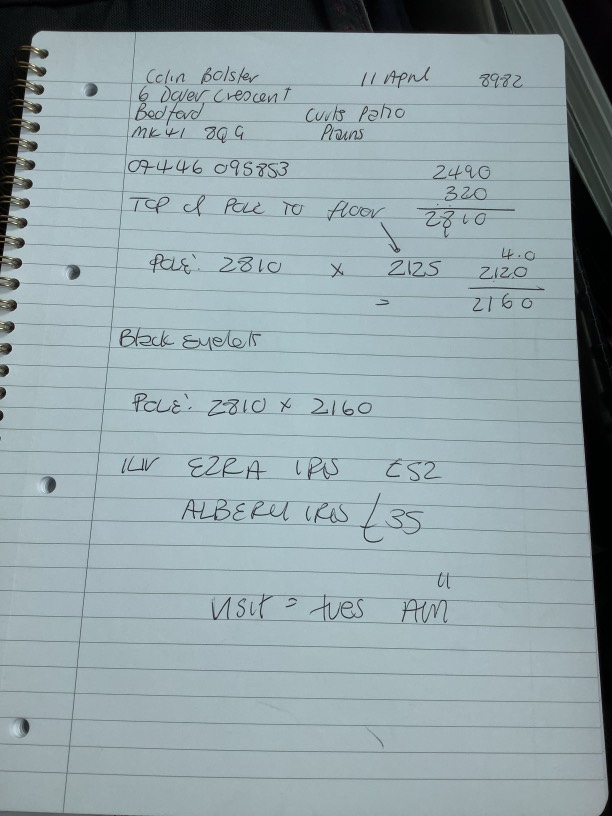 Colin Bolster 11 April 8982
6 Dover Crescent
Bedford Curts Patio
MK41 8QG Plains
07446 095853 2490
320
TOP of Pole TO floor 2810
4.0
POLE: 2810 x 2125 2120
= 2160
Black Eyelets
POLE: 2810 x 2160
ILIV EZRA IRIS £52
ALBERY IRIS £35
11
visit = tues AM